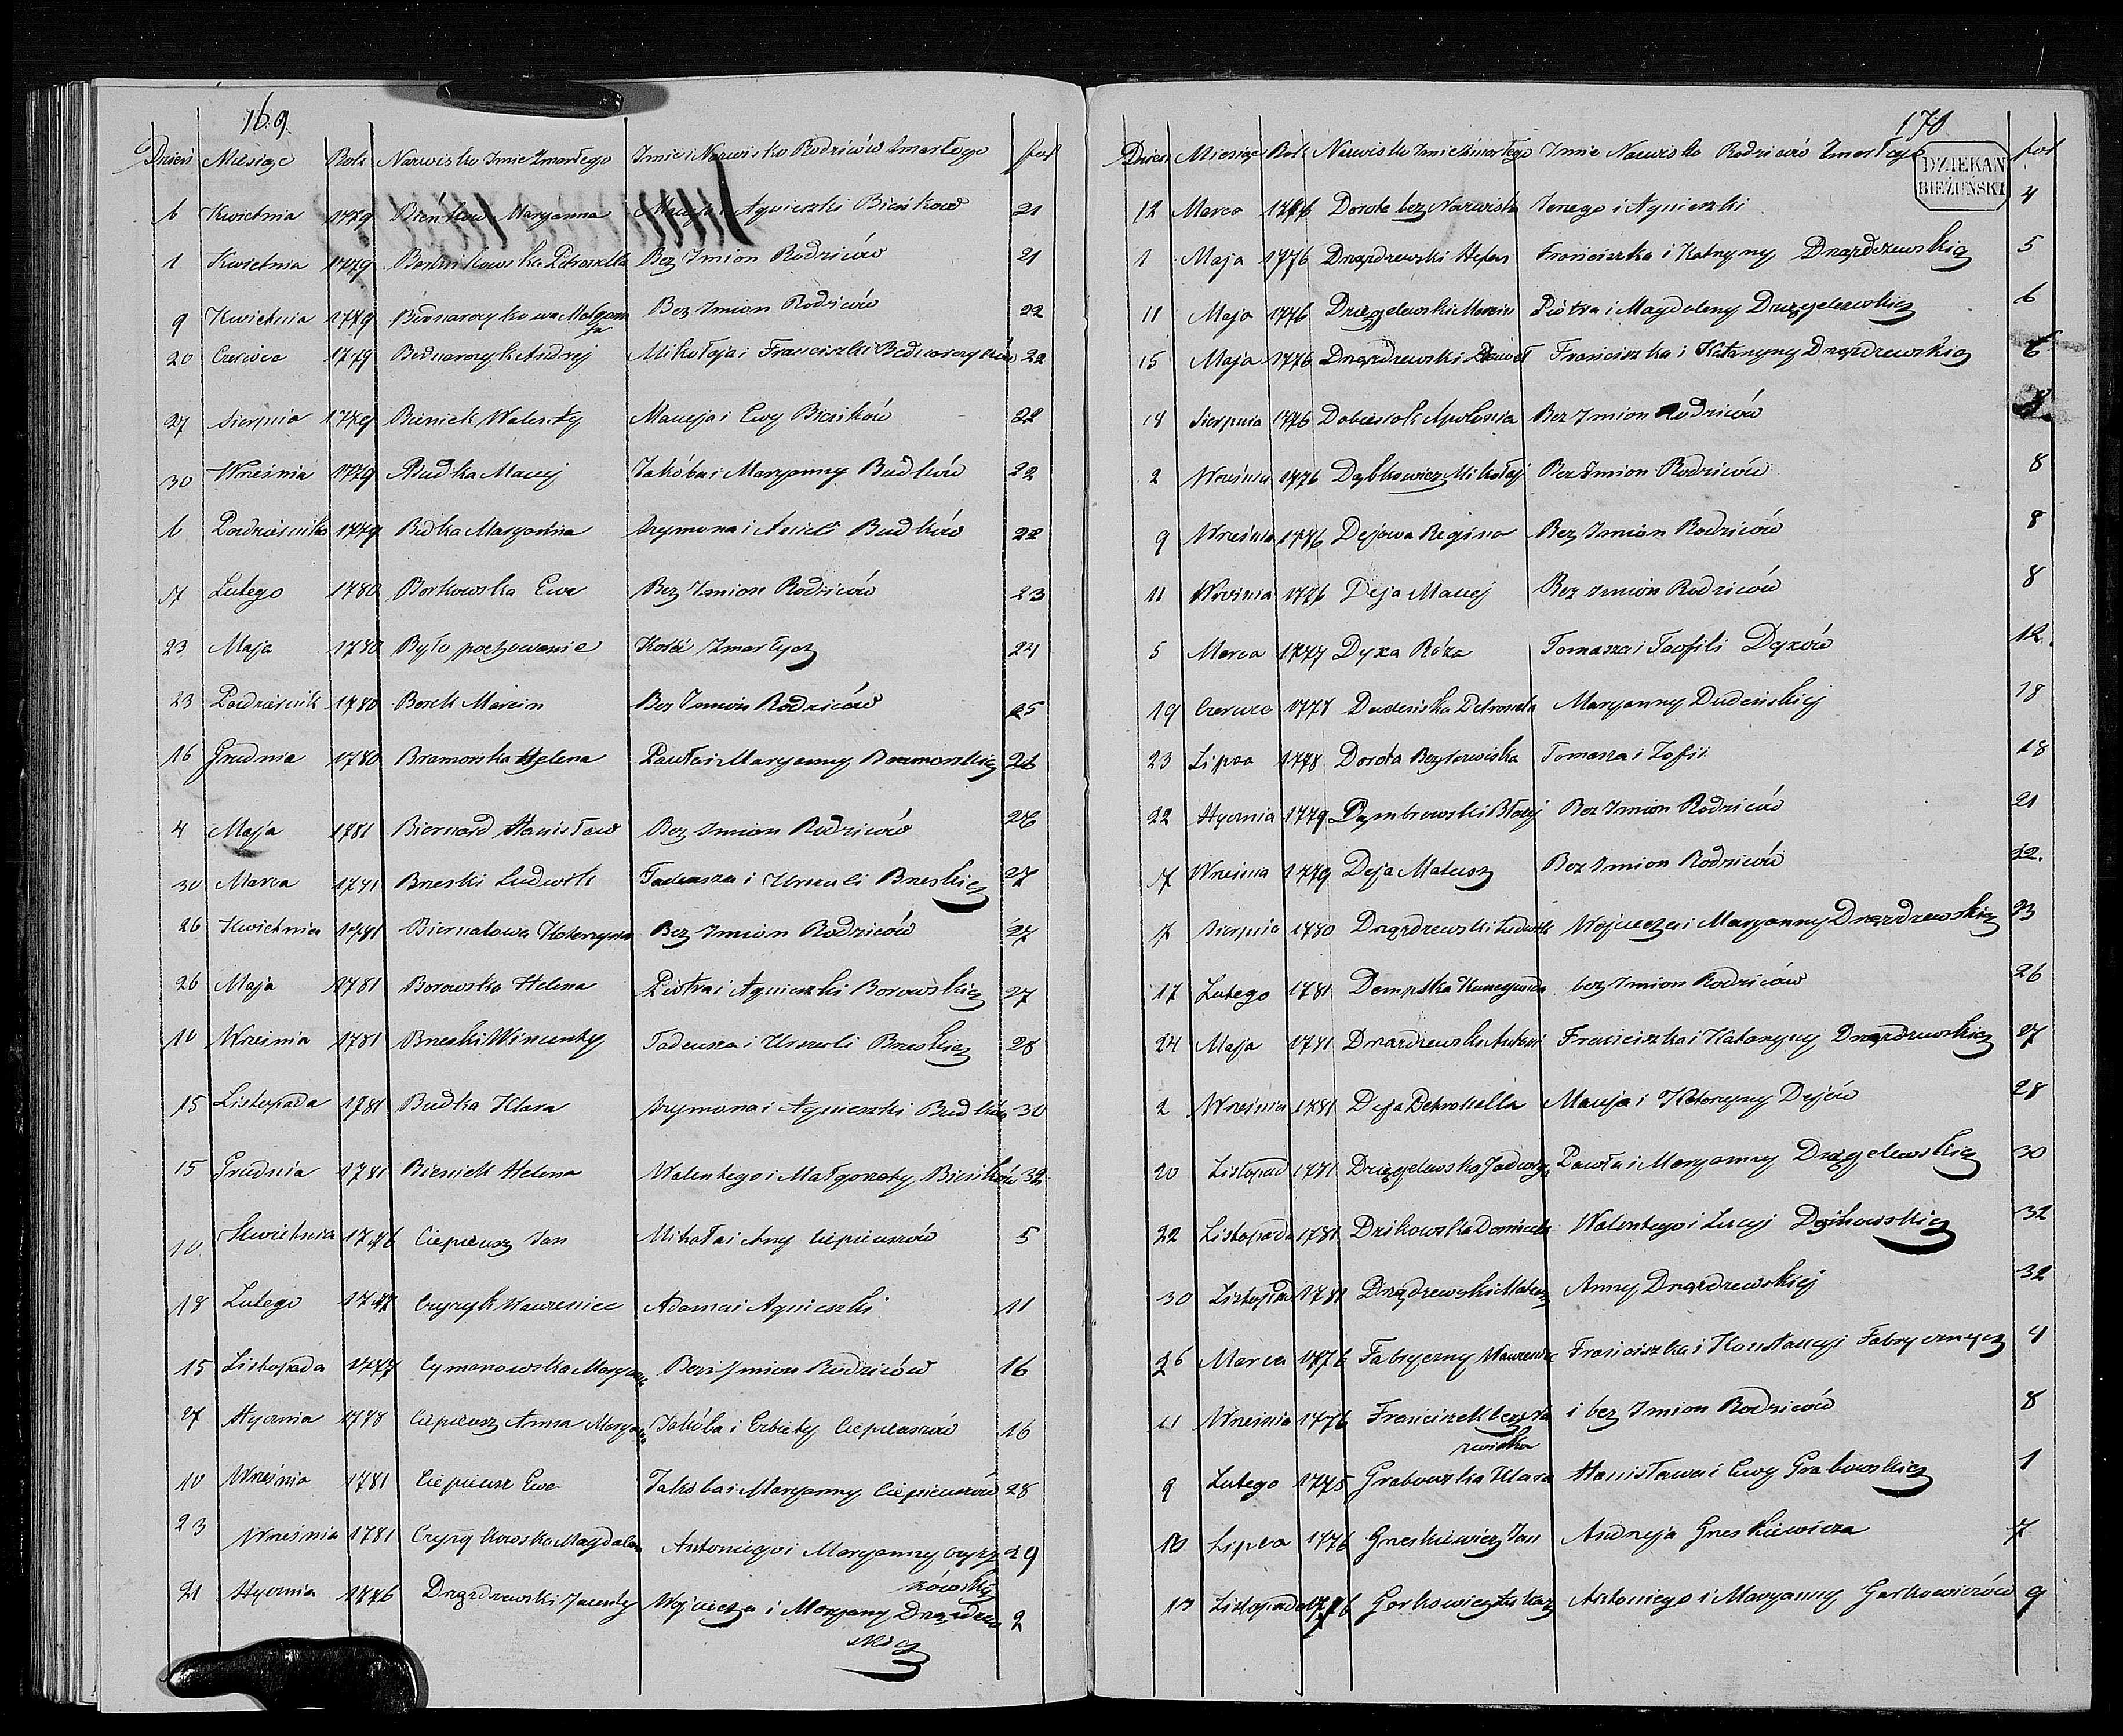 169.
Dzień Miesiąc Rok Nazwisko Imie Zmarłego Imie i Nazwisko Rodziców Zmarłego fol
6 Kwietnia 1779 Bieńkow Maryanna Macieja i Agnieszki Bieńkow 21
1 Kwietnia 1779 Petronella Bez Imion Rodziców 21
9 Kwietnia 1779 Bednarczykowa Małgorza Bez Imion Rodziców 22
20 Czerwca 1779 Bednarczyk Andrej Mikołaja i Franciszki Bednarczyków 22
27 Sierpnia 1779 Bieniek Walenty Macieja i Ewy Bieńków 22
30 Wrzesnia 1779 Budka Maciej Jakóba i Maryanny Budków 22
6 Pazdziernika 1779 Budka Maryanna Szymona i Anieli Budków 22
7 Lutego 1780 Borkowska Ewa Bez Imion Rodziców 23
23 Maja 1780 Było pochowanie Kości Zmarłych 24
23 Pazdziernik 1780 Borek Marcin Bez Imion Rodziców 25
16 Grudnia 1780 Bramorska Helena Pawła i Maryanny Bramorskich 26
4 Maja 1781 Biernard Stanisław Bez Imion Rodziców 26
30 Marca 1781 Brzeski Ludwik Tadeusza i Urszuli Brzeskich 27
26 Kwietnia 1781 Biernatowa Katarzyna Bez Imion Rodziców 27
26 Maja 1781 Borowska Helena Piotra i Agnieszki Borowskich 27
10 Wrzesnia 1781 Brzeski Wincenty Tadeusza i Urszuli Brzeskich 28
15 Listopada 1781 Budka Klara Szymona i Agnieszki Budków 30
15 Grudnia 1781 Bieniek Helena Walentego i Małgorzaty Bieńków 32
10 Kwietnia 1776 Ciepieusz Jan Mikołai Anny Ciepieuszów 5
18 Lutego 1777 Czyzyk Wawrzeniec Adama i Agnieszki 11
15 Listopada 1777 Cymanowska Maryanna Bez Imion Rodziców 16
27 Stycznia 1778 Ciepieusz Anna Maryanna Jakóba i Elzbiety Ciepieuszów 16
10 Wrzesnia 1781 Ciepieusz Ewa Jakóba i Maryanny Ciepieuszów 28
23 Wrzesnia 1781 Magdalena Antoniego i Maryanny Czyzy 29
kowskich
21 Stycznia 1776 Drązdzewski Jacenty Wojciecha i Maryany Drązdzew 2
skich
170
DZIEKAN
BIEŻUŃSKI
Dzień Miesiąc Rok Nazwisko Imie Zmarłego Imie Nazwisko Rodziców Zmarłych fol
12 Marca 1776 Dorota bez Nazwiska Jerzego i Agnieszki 4
1 Maja 1776 Drązdzewski Stefan Franciszka i Katarzyny Drązdzewskich 5
11 Maja 1776 Drzęzgelewski Marcin Piotra i Magdaleny Drzęzgelewskich 6
15 Maja 1776 Drązdzewski Paweł Franciszka i Katarzyny Drązdzewskich 6
18 Sierpnia 1776 Apolonia Bez Imion Rodziców
2 Wrzesnia 1776 Dąbkowicz Mikołaj Bez Imion Rodziców 8
9 Wrzesnia 1776 Dejowa Regina Bez Imion Rodziców 8
11 Wrzesnia 1776 Deja Maciej Bez Imion Rodziców 8
5 Marca 1777 Dyxa Róza Tomasza i Teofili Dyxów 12.
19 Czerwca 1778 Dudeńska Petronela Maryanny Dudeńskiej 18
23 Lipca 1778 Dorota Bez Nazwiska Tomasza i Zofii 18
22 Stycznia 1779 Dymbrowski Błazej Bez Imion Rodziców 21
7 Wrzesnia 1779 Deja Mateusz Bez Imion Rodziców 22.
7 Sierpnia 1780 Drązdzewski Ludwik Wojciecha i Maryanny Drązdzewskich 23
17 Lutego 1781 Dempska Kunegunda bez Imion Rodziców 26
24 Maja 1781 Drązdzewski Antoni Franciszka i Katarzyny Drązdzewskich 27
2 Wrzesnia 1781 Deja Petronella Macieja i Katarzyny Dejów 28
20 Listopad 1781 Jadwiga Pawła i Maryanny 30
22 Listopada 1781 Walentego i Łucyi 32
30 Listopada 1781 Drązdzewski Mateusz Anny Drązdzewskiej 32
26 Marca 1776 Fabryczny Wawrzeniec Franciszka i Konstancyi Fabrycznych 4
11 Wrzesnia 1776 Franciszek bez Na i bez Imion Rodziców 8
zwiska
9 Lutego 1775 Grabowska Klara Stanisława i Ewy Grabowskich 1
10 Lipca 1776 Greskiewicz Jan Andrzeja Greskiewicza 7
13 Listopada 1776 Gorkowicz Łukasz Antoniego i Maryanny Gorkowiczów 9